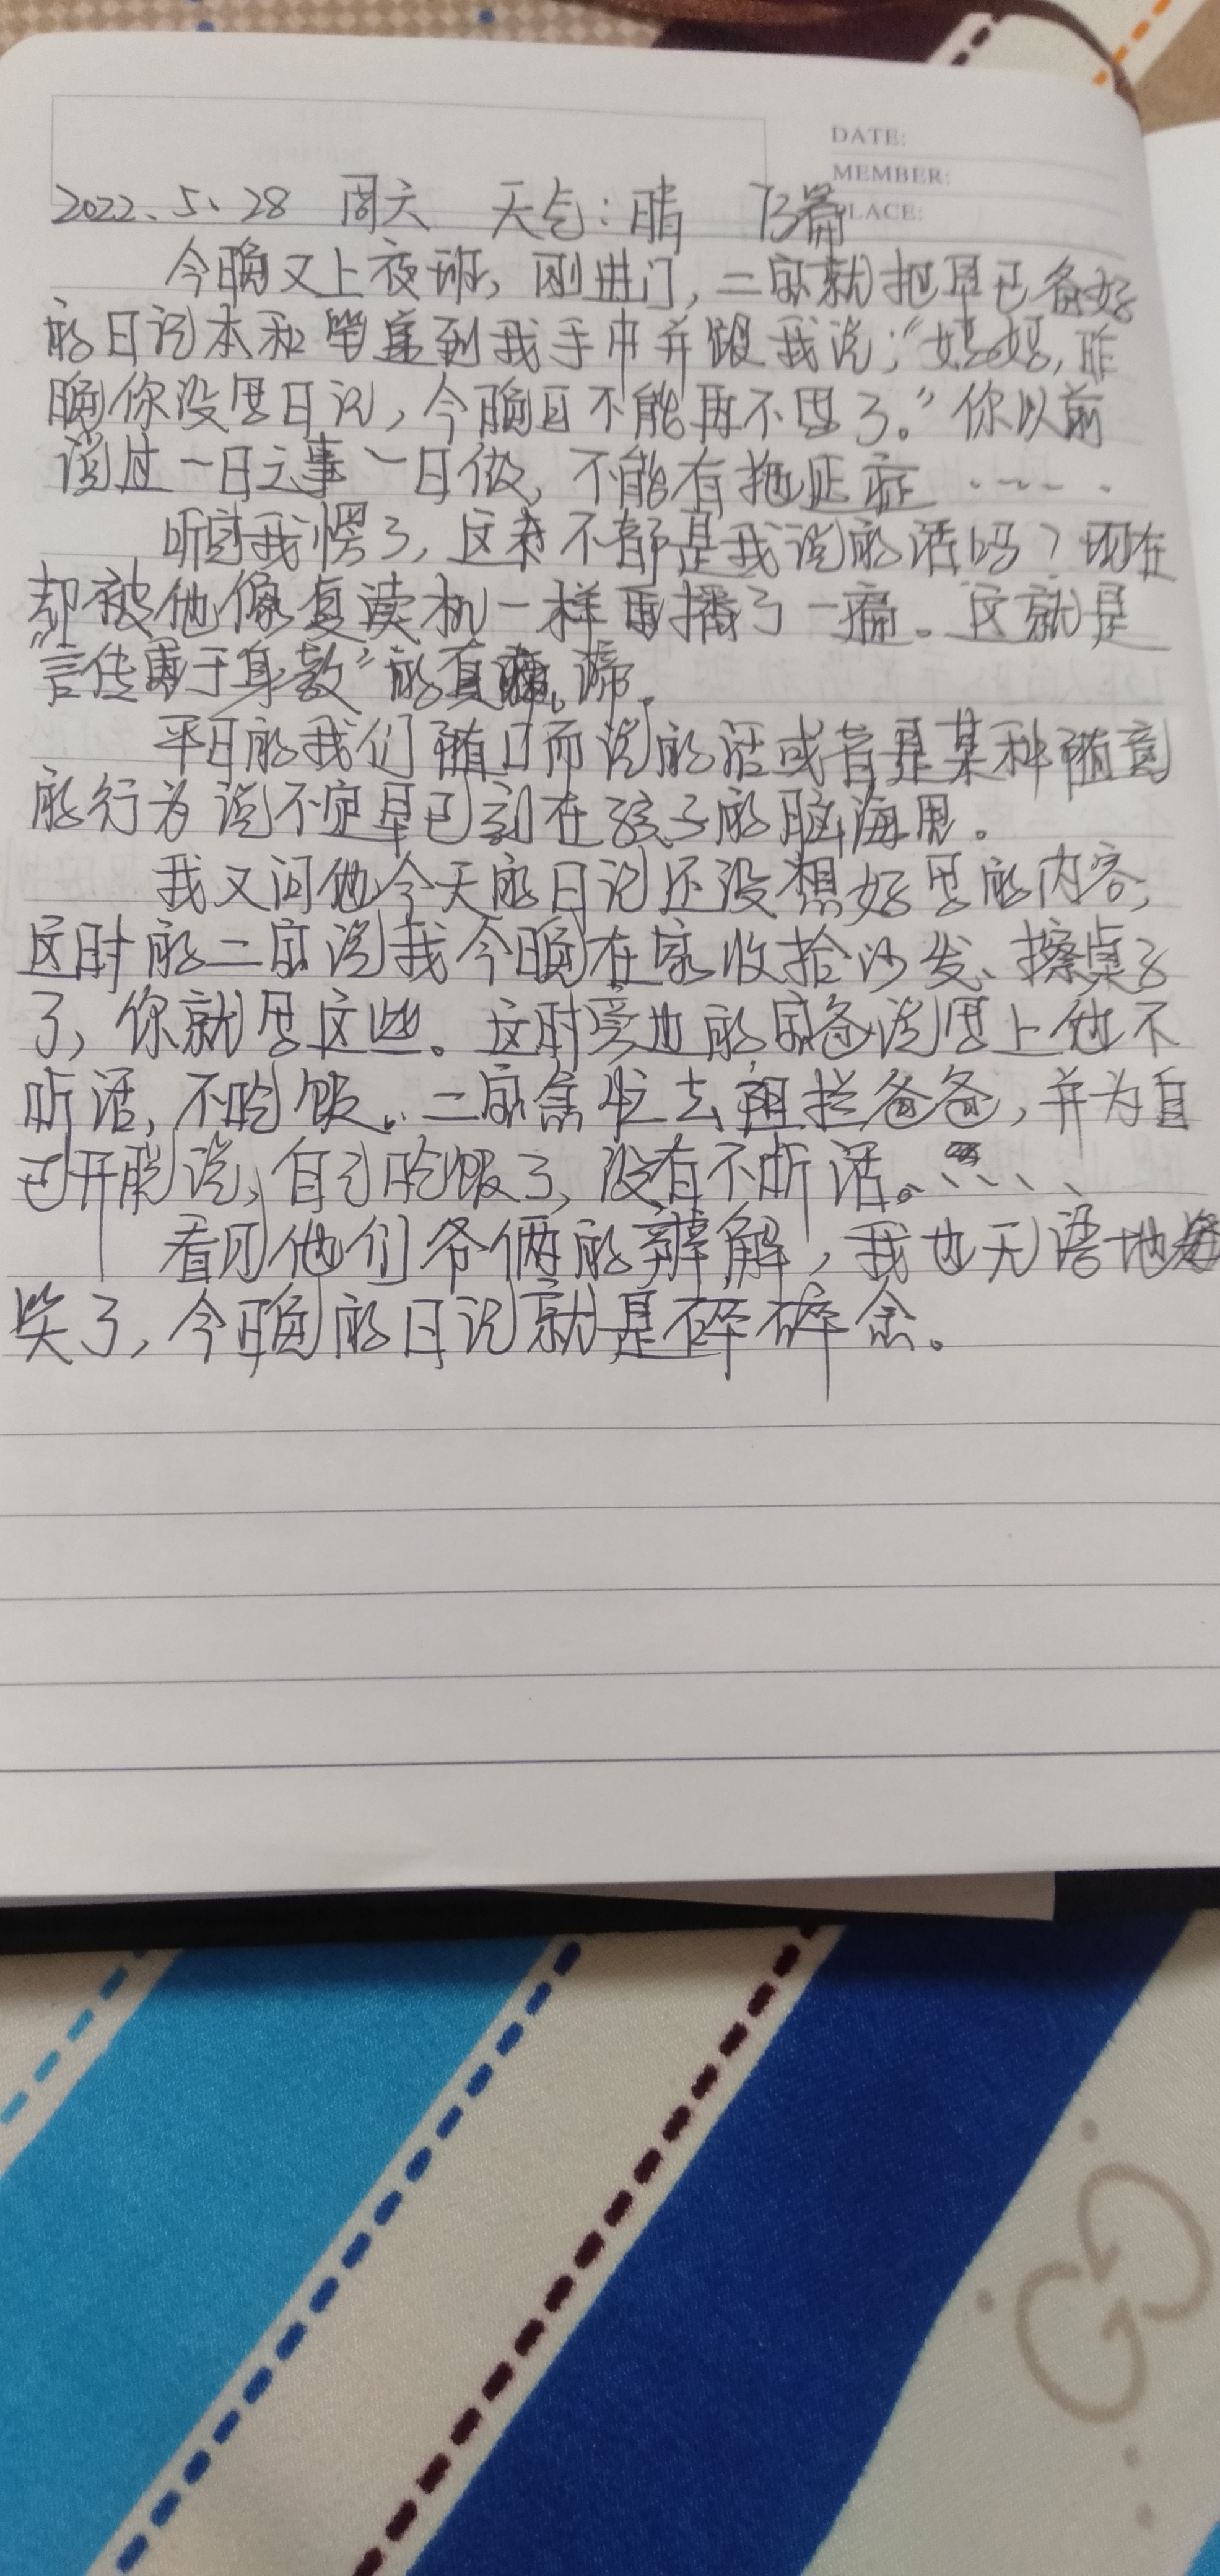 DATE:
MEMBER:
PLACE:
2022.5.28 周六 天气:晴 73篇
今晚又上夜班,刚进门,二宝就把早已备好
的日记本和笔塞到我手中并跟我说:“妈妈,昨
晚你没写日记,今晚可不能再不写了。”你以前
说过一日之事一日做,不能有拖延症……
听完我愣了,这来不都是我说的话吗?现在
却被他像复读机一样重播了一遍。这就是
“言传重于身教”的真谛。
平日的我们随口而说的话或者是某种随意
的行为说不定早已刻在孩子的脑海里。
我又问他今天的日记还没想好写的内容,
这时的二宝说我今晚在家收拾沙发、擦桌子
了,你就写这些。这时旁边的宝爸说写上他不
听话,不吃饭。二宝急忙去阻拦爸爸,并为自
己开脱说,自己吃饭了,没有不听话。……
看见他们爷俩的辨解,我也无语地
笑了,今晚的日记就是碎碎念。